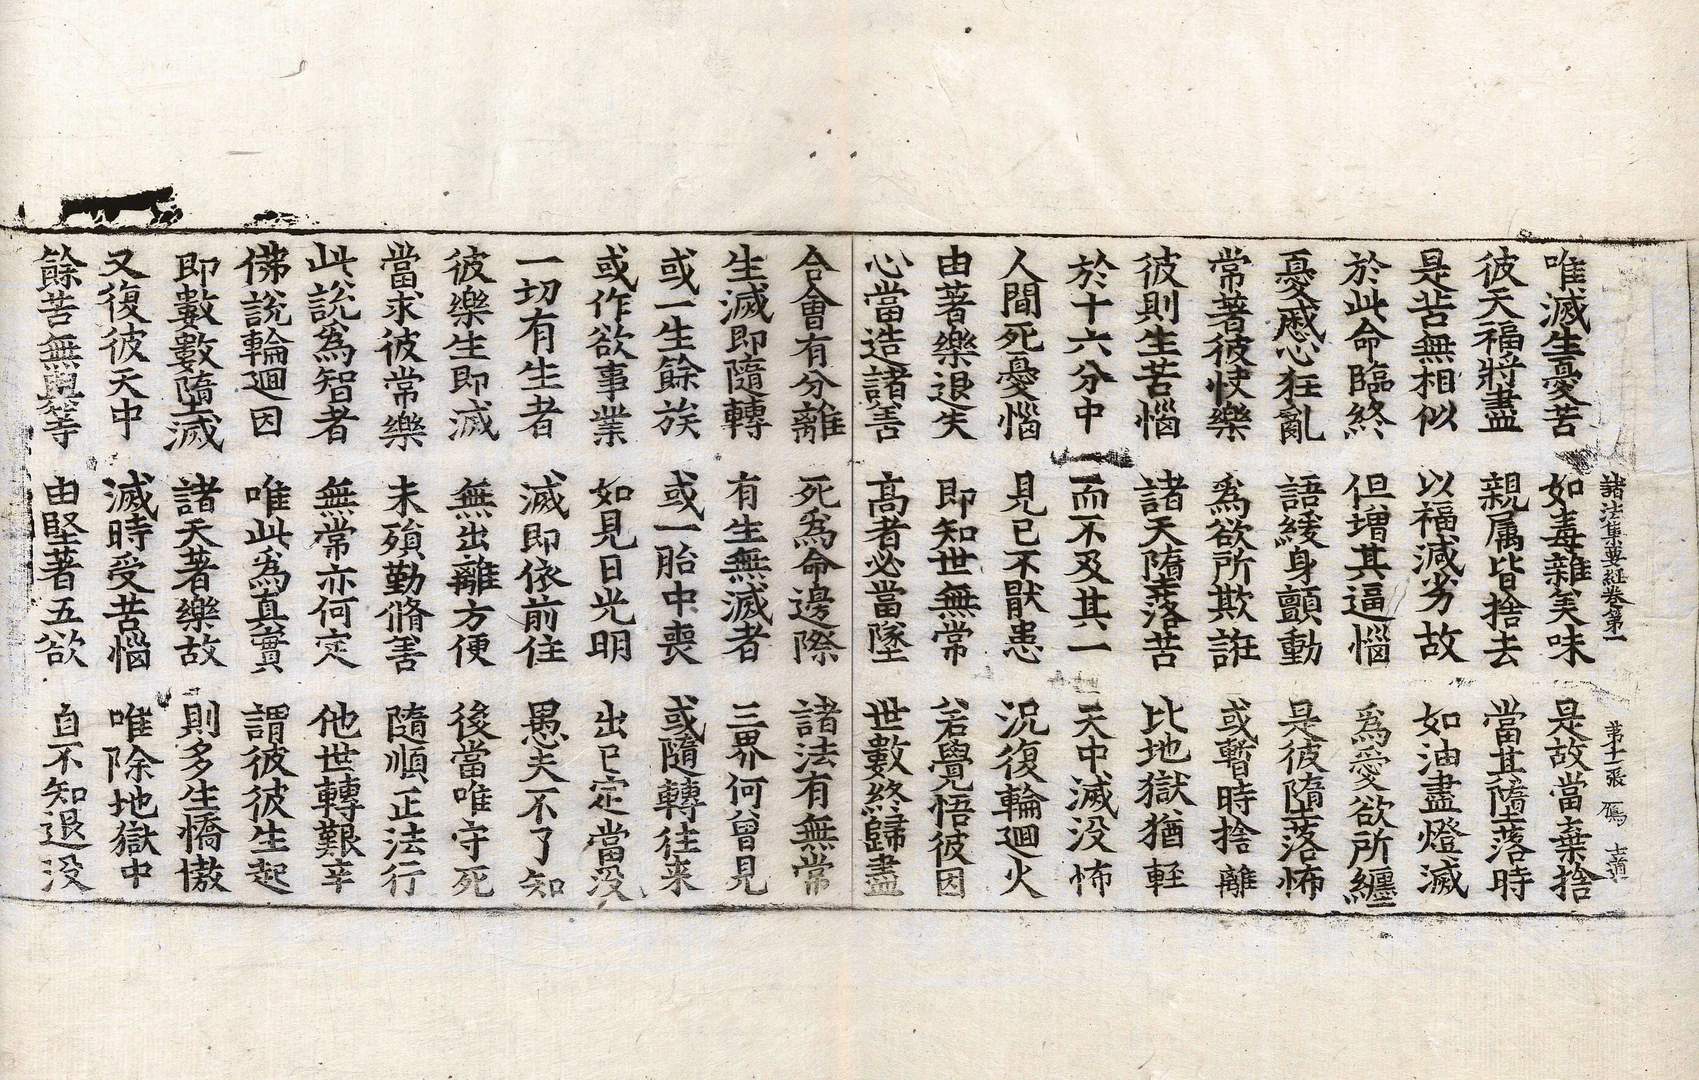 諸法集要經卷第一 第十二張 碼
唯滅生憂苦 如毒雜美味 是故當棄捨
彼天福將盡 親属皆捨去 當其墮落時
是苦無相似 以福減劣故 如油盡燈滅
於此命臨終 但增其逼惱 爲愛欲所纏
憂慼心狂亂 語緩身顫動 是彼墮落怖
常著彼快樂 爲欲所欺誑 或暫時捨離
彼則生苦惱 諸天墮落苦 比地獄猶輕
於十六分中 而不及其一 天中滅没怖
人間死憂惱 見已不猒患 況復輪迴火
由著樂退失 即知世無常 若覺悟彼因
心當造諸善 高者必當墜 世數終歸盡
合會有分離 死爲命邊際 諸法有無常
生滅即隨轉 有生無滅者 三界何曾見
或一生餘族 或一胎中喪 或隨轉往来
或作欲事業 如見日光明 出已定當没
一切有生者 滅即依前住 愚夫不了知
彼樂生即滅 無出離方便 後當唯守死
當求彼常樂 未殞勤脩善 隨順正法行
此說爲智者 無常亦何定 他世轉艱辛
佛說輪迴因 唯此爲真實 謂彼彼生起
即數數墮滅 諸天著樂故 則多生憍慠
又復彼天中 滅時受苦惱 唯除地獄中
餘苦無與等 由堅著五欲 自不知退没